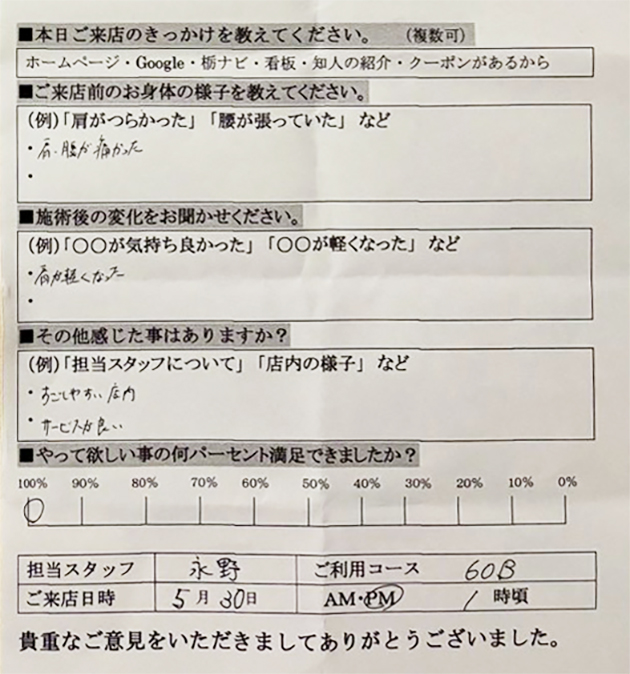 ■本日ご来店のきっかけを教えてください。 （複数可）
ホームページ・Google・栃ナビ・看板・知人の紹介・クーポンがあるから
■ご来店前のお身体の様子を教えてください。
（例）「肩がつらかった」「腰が張っていた」など
・肩・腰が痛かった
・
■施術後の変化をお聞かせください。
（例）「〇〇が気持ち良かった」「〇〇が軽くなった」など
・肩が軽くなった
・
■その他感じた事はありますか？
（例）「担当スタッフについて」「店内の様子」など
・すごしやすい店内
・サービスが良い
■やって欲しい事の何パーセント満足できましたか？
100% 90% 80% 70% 60% 50% 40% 30% 20% 10% 0%
担当スタッフ 永野 ご利用コース 60B
ご来店日時 5月30日 AM・PM 1時頃
貴重なご意見をいただきましてありがとうございました。